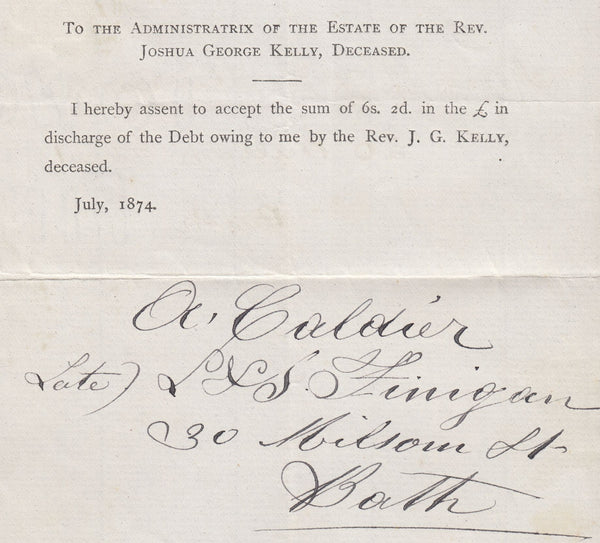 To the Administratrix of the Estate of the Rev.
Joshua George Kelly, Deceased.
I hereby assent to accept the sum of 6s. 2d. in the £ in
discharge of the Debt owing to me by the Rev. J. G. Kelly,
deceased.
July, 1874.
A. Caldier
Late) L & S. Finigan
30 Milsom St
Bath